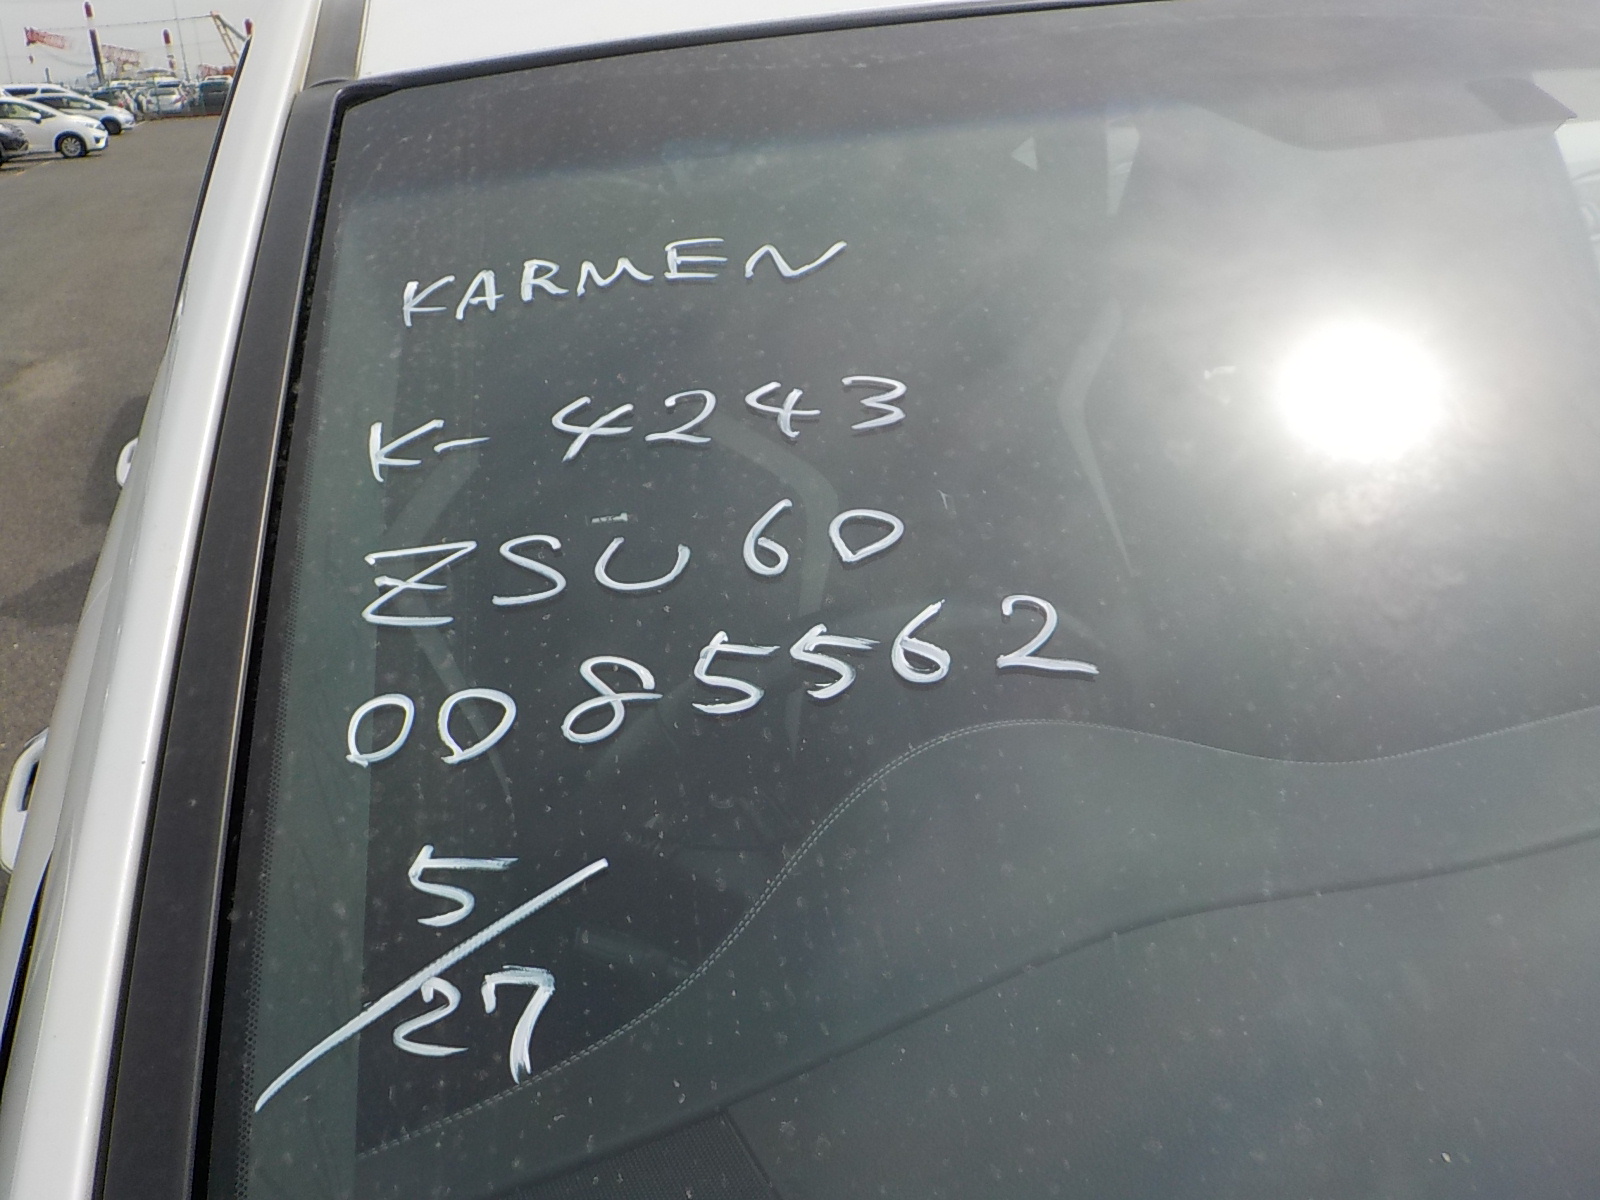 KARMEN
K- 4243
ZSU60
0085562
5/27